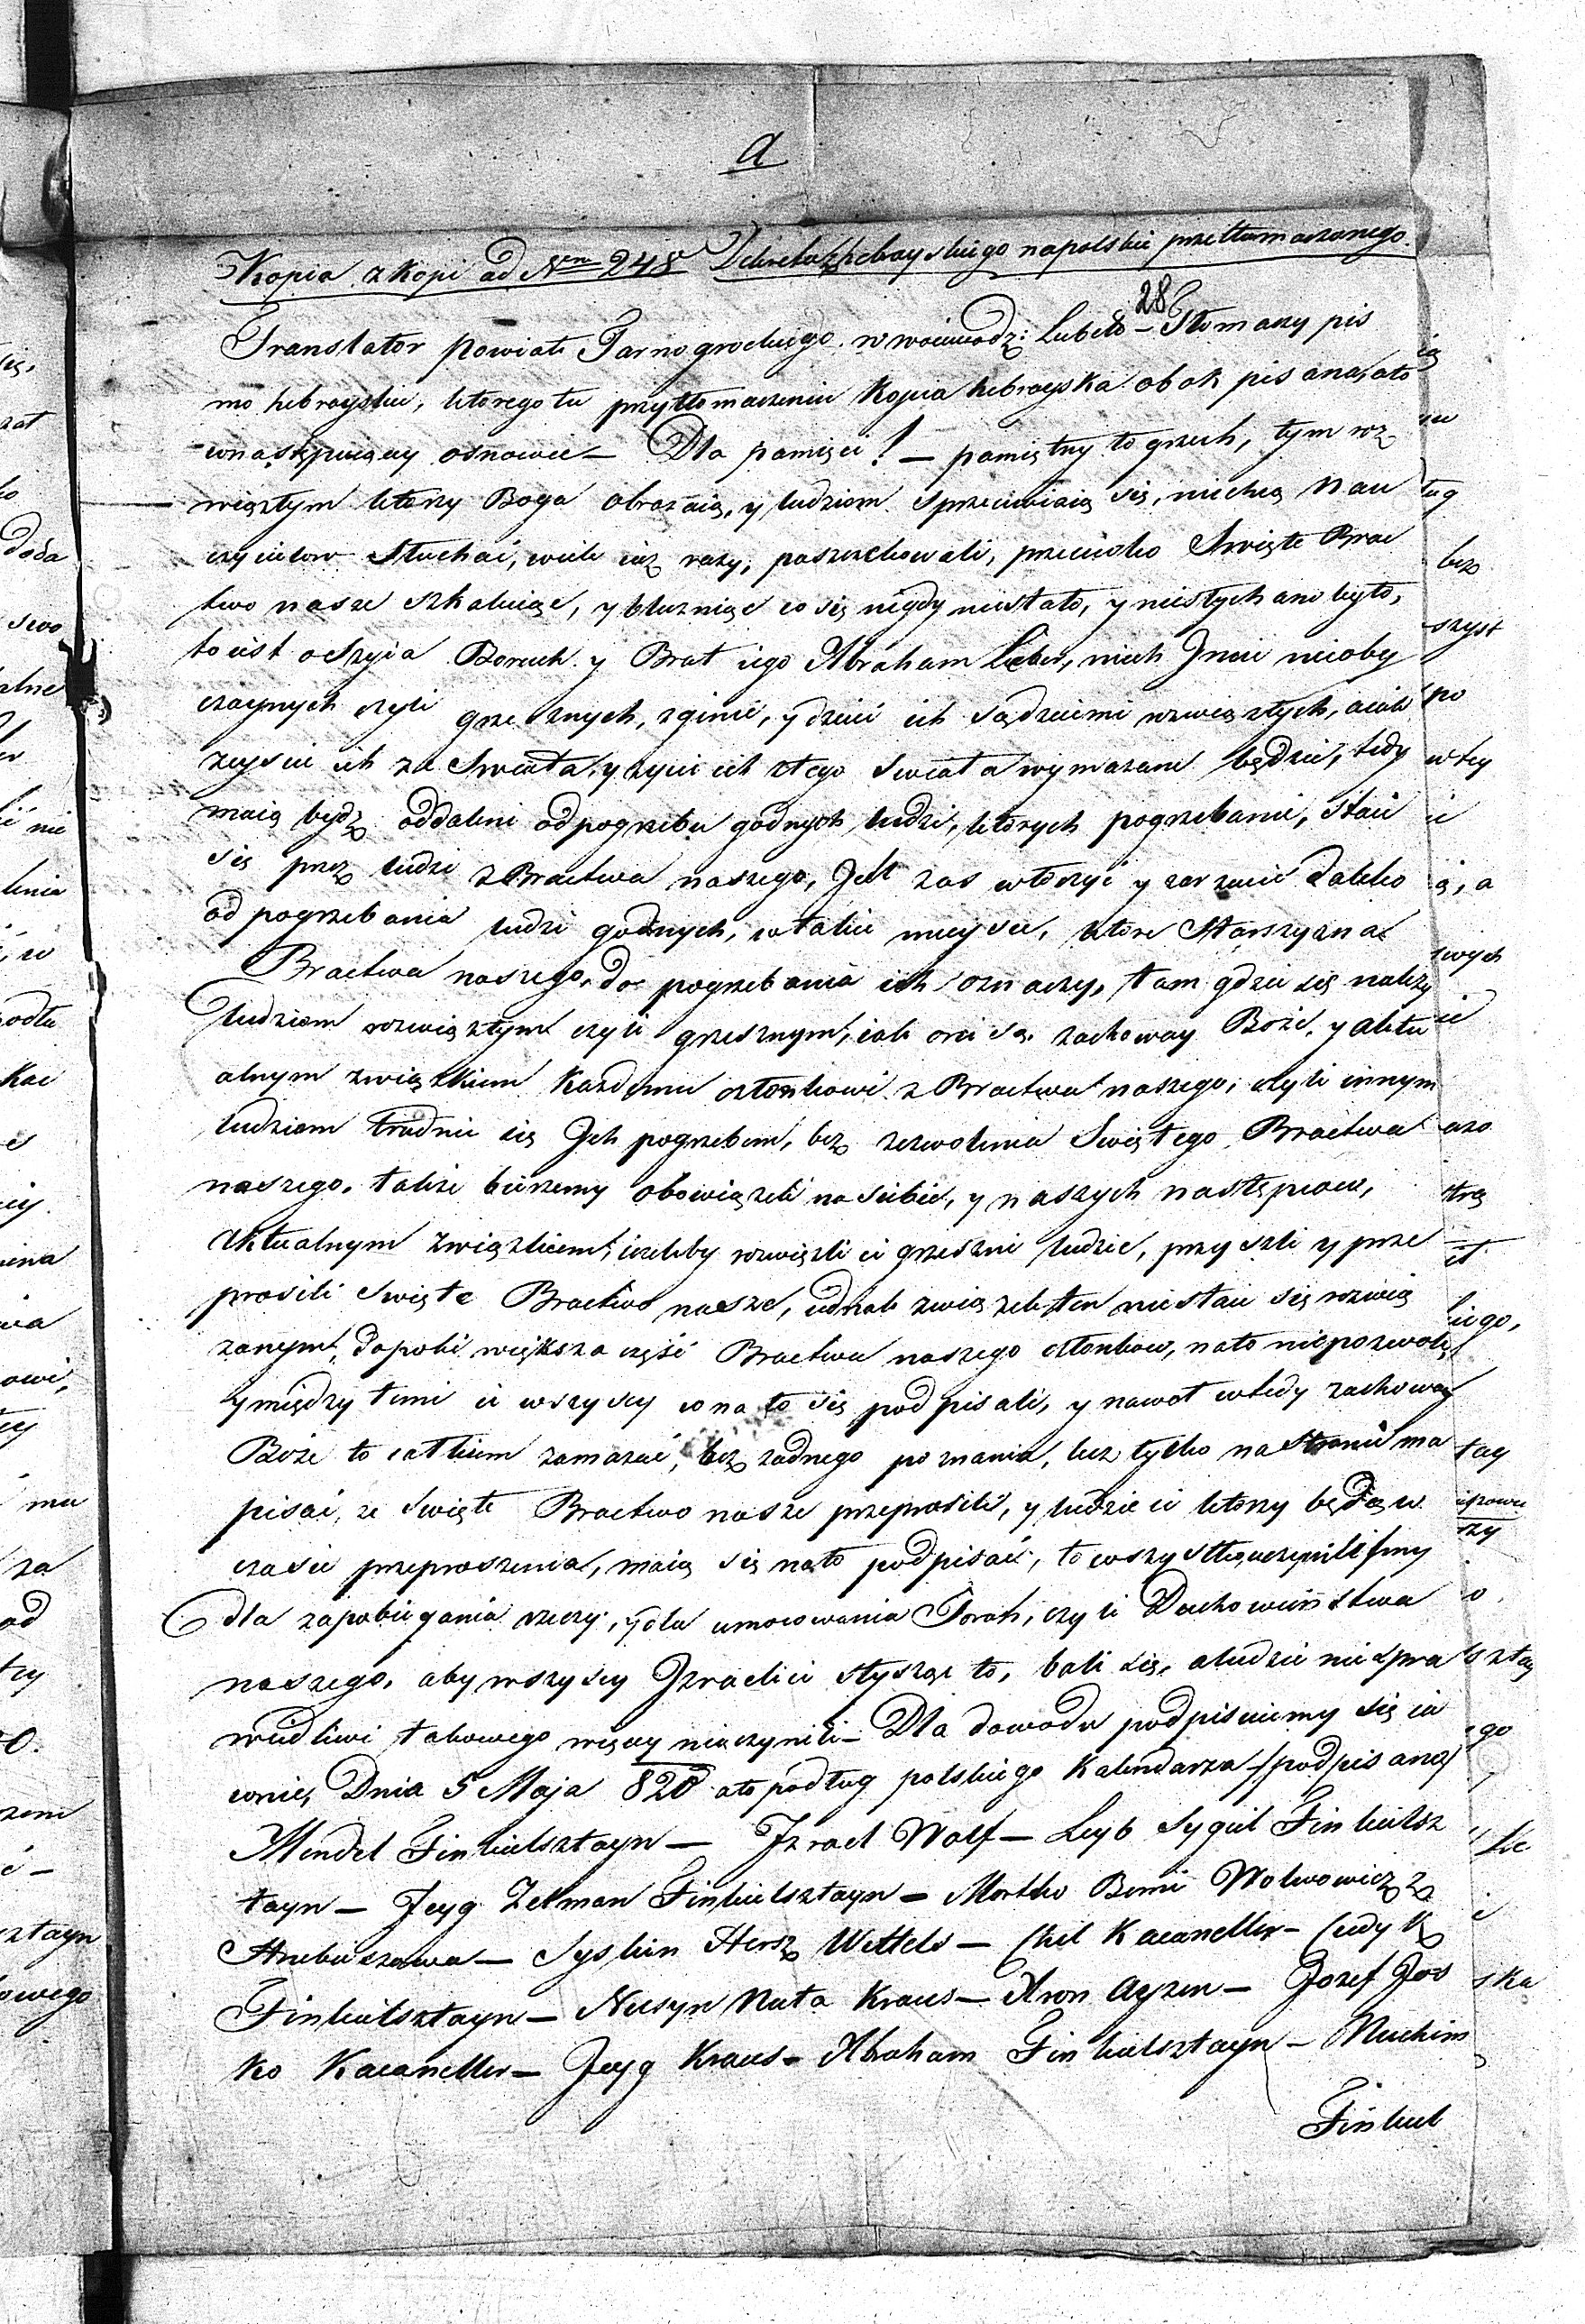 a
Kopia z kopi ad Nrm 248 Dekretu z hebrayskiego na polskie przetłumaczonego.
286
Translator powiatu Tarnogrodzkiego w woiewodz: Lubels – Tłomaczy pis
mo hebrayskie, ktorego tu przytłomaczeniu Kopia hebrayska obok pisana, ato
wnastępuiącey osnowie – Dla pamięci! – pamiętny to grzech, tym roz
wiązłym ktorzy Boga obrażaią, y ludziom sprzeciwiaią się, niechcą Nau
czycielow słuchać, wiele iuż razy, poszezekowali, przeciwko Swięte Brac
two nasze szkaluiąc, y bluzniąc co się nigdy niestało, y niesłychano było,
to iest oSzyia Boruch y Brat iego Abraham Lieber, niech Jmie nieoby
czaynych czyli grzesznych, zginie, y dzieci ich są dziećmi rozwiązłych, aiak
zeyscie ich ze Swiata, y zycie ich z tego swiata wymazane będzie, tedy
maią bydz oddaleni od pogrzebu godnych ludzi, ktorych pogrzebanie, staie
się prze ludzi z Bractwa naszego, Jch zas włozyć y zarzucić daleko
od pogrzebania ludzi godnych, w takie mieysce, ktore Starszyzna
Bractwa naszego, do pogrzebania ich oznaczy, tam gdzie się należy
ludziom rozwiązłym czyli grzesznym, iak oni są. zachoway Boże, y aktu
alnym związkiem Kazdemu członkowi z Bractwa naszego, czyli innym
ludziom trudnić się Jch pogrzebem, bez zezwolenia Swiętego Bractwa
naszego. także bierzemy obowiązek na siebie, y naszych następcow,
Aktualnym związkiem, iżeliby rozwięźli ci grzeszni ludzie, przyszli y prze
prosili swięte Bractwo nasze, iednak związek ten niestaie się rozwią
zanym, dopoki większa część Bractwa naszego członkow, nato niepozwoli,
y między temi ci wszyscy co na to się podpisali, y nawet wtedy zachoway
Boże to całkiem zamazać, bez zadnego poznania, lecz tylko na stronie ma
pisać, ze swięte Bractwo nasze przeprosili, y ludzie ci ktorzy będą w
czasie przeproszenia, maią się nato podpisać, to wszystko uczyniliśmy
dla zapobiegania rzeczy, y dla umocowania Torah, czyli Duchowieństwa
naszego, aby wszyscy Jzraelici słysząc to, bali się, aludzie niespra
wiedliwi takowego więcey nieczynili – Dla dowodu podpisuiemy się ia
wnie, Dnia 5 Maja 820 ato podług polskiego Kalendarza /podpisano/
Mendel Finkielsztayn – Jzrael Wolf – Leyb Sygiel Finkielsz
tayn – Jcyg Zelman Finkielsztayn – Mortko Beni Wolwowicz z
Hrubieszowa – Syskin Hersz Wettels – Chel Kacaneller – Judy K
Finkielsztayn – Nusyn Nuta Kraus – Aron Ayzen – Jozef Jos
ko Kacaneller – Jcyg Kraus – Abraham Finkielsztayn – Nuchim
Finkiel